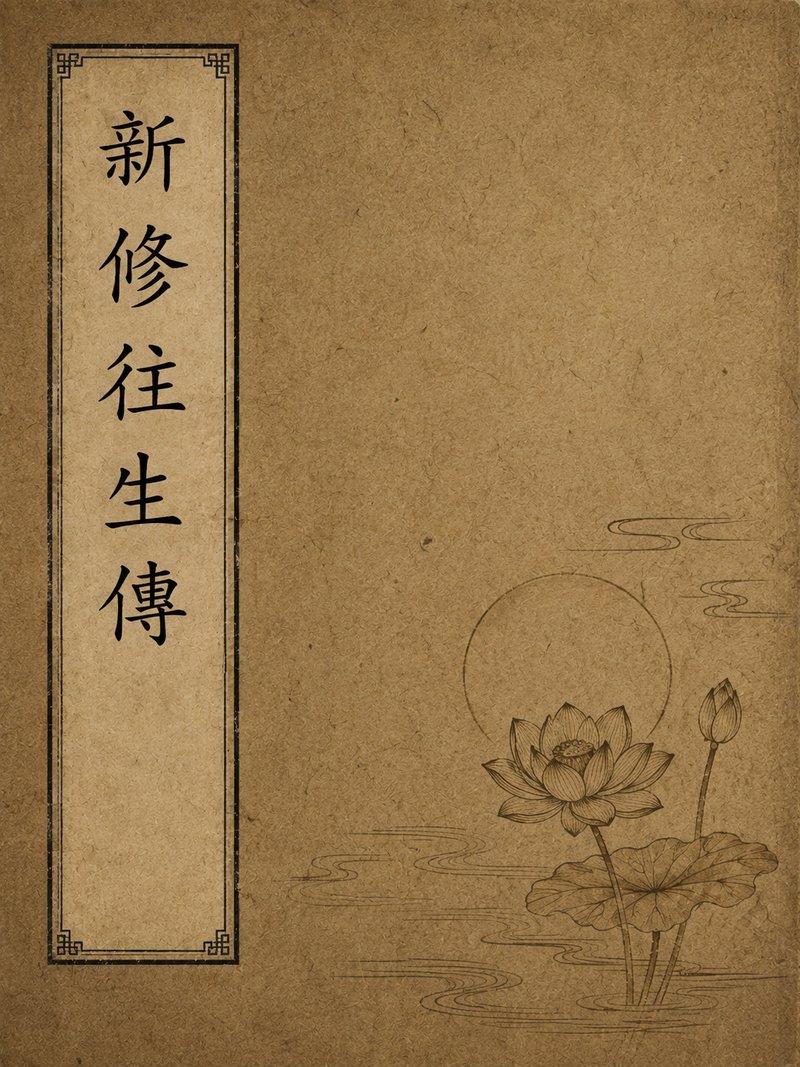 新修往生傳